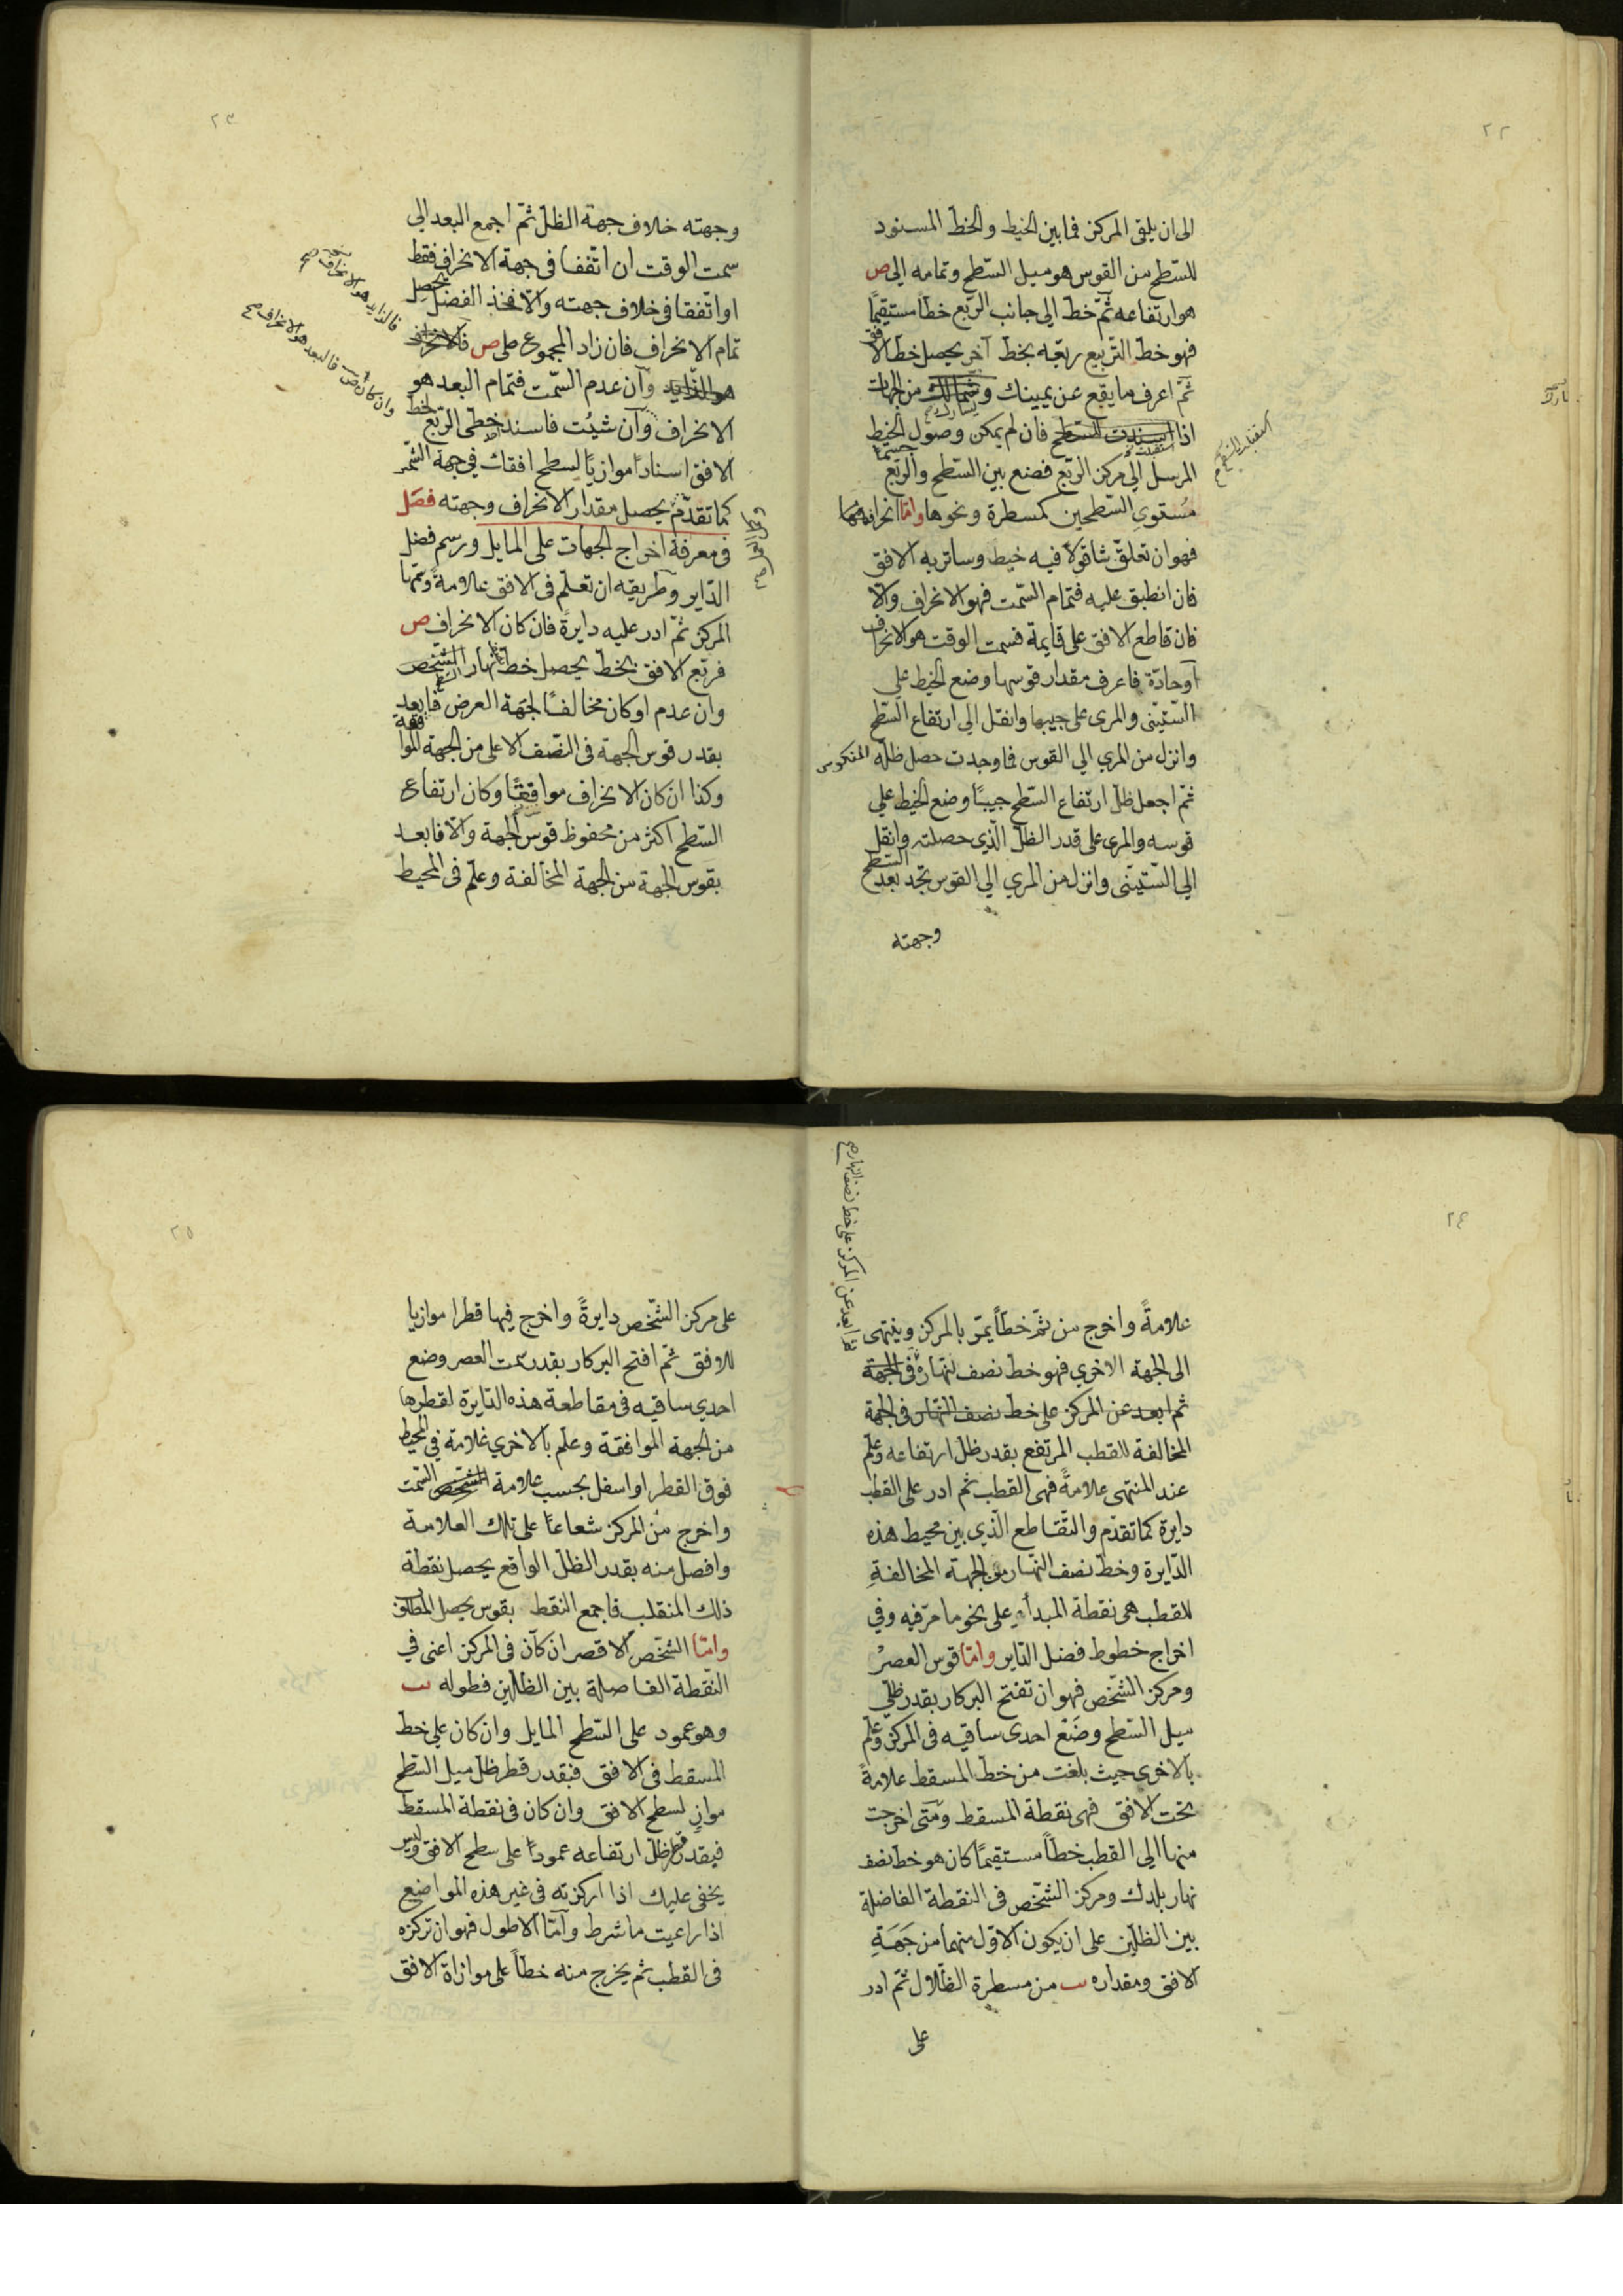 ٢٢
الى ان يلقى المركز فما بين الخيط والخط المسنود
للسّطح من القوس هو ميل السّطح وتمامه الي ص
هو ارتفاعه ثمّ خط الي جانب الرّبع خطا مستقيمًا
فهو خط التّربيع ربّعه بخط آخر يحصل خط الافق
ثمّ اعرف ما يقع عن يمينك وشمالك من الجهات
اذا اسندت السّطح فان لم يمكن وصول الخيط
المرسل الي مركز الرّبع فضع بين السّطح والرّبع جسمًا
مستوي السّطحين كمسطرة ونحوها وامّا انحرافهما
فهو ان تعلّق شاقولا فيه خيط وساتر به الافق
فان انطبق عليه فتمام السّمت فهو الانحراف والّا
فان قاطع الافق على قايمة فسمت الوقت هو الانحراف
او حادّة فاعرف مقدار قوسها وضع الخيط علي
السّتيّنى والمري على جيبها وانقل الي ارتفاع السّطح
وانزل من المري الي القوس فما وجدت حصل ظلّه المنكوس
ثمّ اجعل ظل ارتفاع السّطح جيبًا وضع الخيط علي
قوسه والمري على قدر الظلّ الّذي حصلته وانقل
الي السّتيّنى وانزل من المري الي القوس تجد بعد السّطح
وجهته
٢٣
وجهته خلاف جهة الظلّ ثمّ اجمع البعد الي
سمت الوقت ان اتفقا فى جهة الانحراف فقط
او اتّفقا فى خلاف جهته والّا فخذ الفضل يحصل
تمام الانحراف فان زاد المجموع على ص فالانحراف
هو الزّايد وان عدم السّمت فتمام البعد هو
الانحراف وان شئت فاسند خطى الرّبع لخط
الافق اسنادًا موازيًا لسطح افقك في جهة الشّمس
كما تقدّم يحصل مقدار الانحراف وجهته فصل
فى معرفة اخراج الجهات على المايل ورسم فضل
الدّاير وطريقه ان تعلّم فى الافق علامةً وسمّها
المركز ثمّ ادر عليه دايرةً فان كان الانحراف ص
فربّع الافق بخطّ يحصل خط نهار الشّخص
وان عدم او كان مخالفًا لجهة العرض فابعد
بقدر قوس الجهة فى النّصف الاعلى من الجهة الموافقة
وكذا ان كان الانحراف موافقًا وكان ارتفاع
السّطح اكثر من محفوظ قوس الجهة والّا فابعد
بقوس الجهة من الجهة المخالفة وعلّم فى المحيط
فالزايد هو الانحراف صح
وان كان ص فالبعد هو الانحراف صح
٢٤
علامةً واخرج من ثمّ خطاً يمّر بالمركز وينتهى
الى الجهة الاخري فهو خط نصف نهاره فى الجهة
ثم ابعد عن المركز على خط نصف النّهار فى الجهة
المخالفة للقطب المرتفع بقدر ظل ارتفاعه وعلّم
عند المنتهى علامةً فهى القطب ثم ادر على القطب
دايرة كما تقدّم والتّقاطع الّذي بين محيط هذه
الدّايرة وخطّ نصف النّهار من الجهة المخالفةِ
للقطب هى نقطة المبدأ على نحو ما مرّ فيه وفي
اخراج خطوط فضل الدّاير وامّا قوس العصر
ومركز الشّخص فهو ان تفتح البركار بقدر ظلّي
ميل السّطح وضع احدى ساقيه فى المركز وعلّم
بالاخرى حيث بلغت من خطّ المسقط علامةً
تحت الافق فهى نقطة المسقط ومتى اخرجت
منها الي القطب خطاً مستقيمًا كان هو خط نصف
نهار بلدك ومركز الشّخص فى النقطة الفاضلة
بين الظلّين على ان يكون الاوّل منهما من جهةِ
الافق ومقداره ىب من مسطرة الظّلال ثمّ ادر
على
ثم ابعد عن المركز على خط نصف النهار صح
٢٥
على مركز الشّخص دايرةً واخرج فيها قطرا موازيا
للافق ثمّ افتح البركار بقدر سمت العصر وضع
احدي ساقيه فى مقاطعة هذه الدّايرة لقطرها
من الجهة الموافقة وعلّم بالاخري علامة في المحيط
فوق القطر او اسفل بحسب علامة الشّخص السّمت
واخرج من المركز شعاعًا على تلك العلامة
وافصل منه بقدر الظلّ الواقع يحصل نقطة
ذلك المنقلب فاجمع النقط بقوس يحصل المطلوب
وامّا الشّخص الاقصر ان كان فى المركز اعنى في
النّقطة الفاصلة بين الظلّين فطوله ىب
وهو عمود على السّطح المايل وان كان علي خطّ
المسقط فى الافق فبقدر قطر ظلّ ميل السّطح
موازٍ لسطح الافق وان كان فى نقطة المسقط
فبقدر قطر ظلّ ارتفاعه عموداً على سطح الافق وليس
يخفى عليك اذا اركزته فى غير هذه المواضع
اذا راعيت ما شرط وامّا الاطول فهو ان تركزه
فى القطب ثم يخرج منه خطاً على موازاة الافق